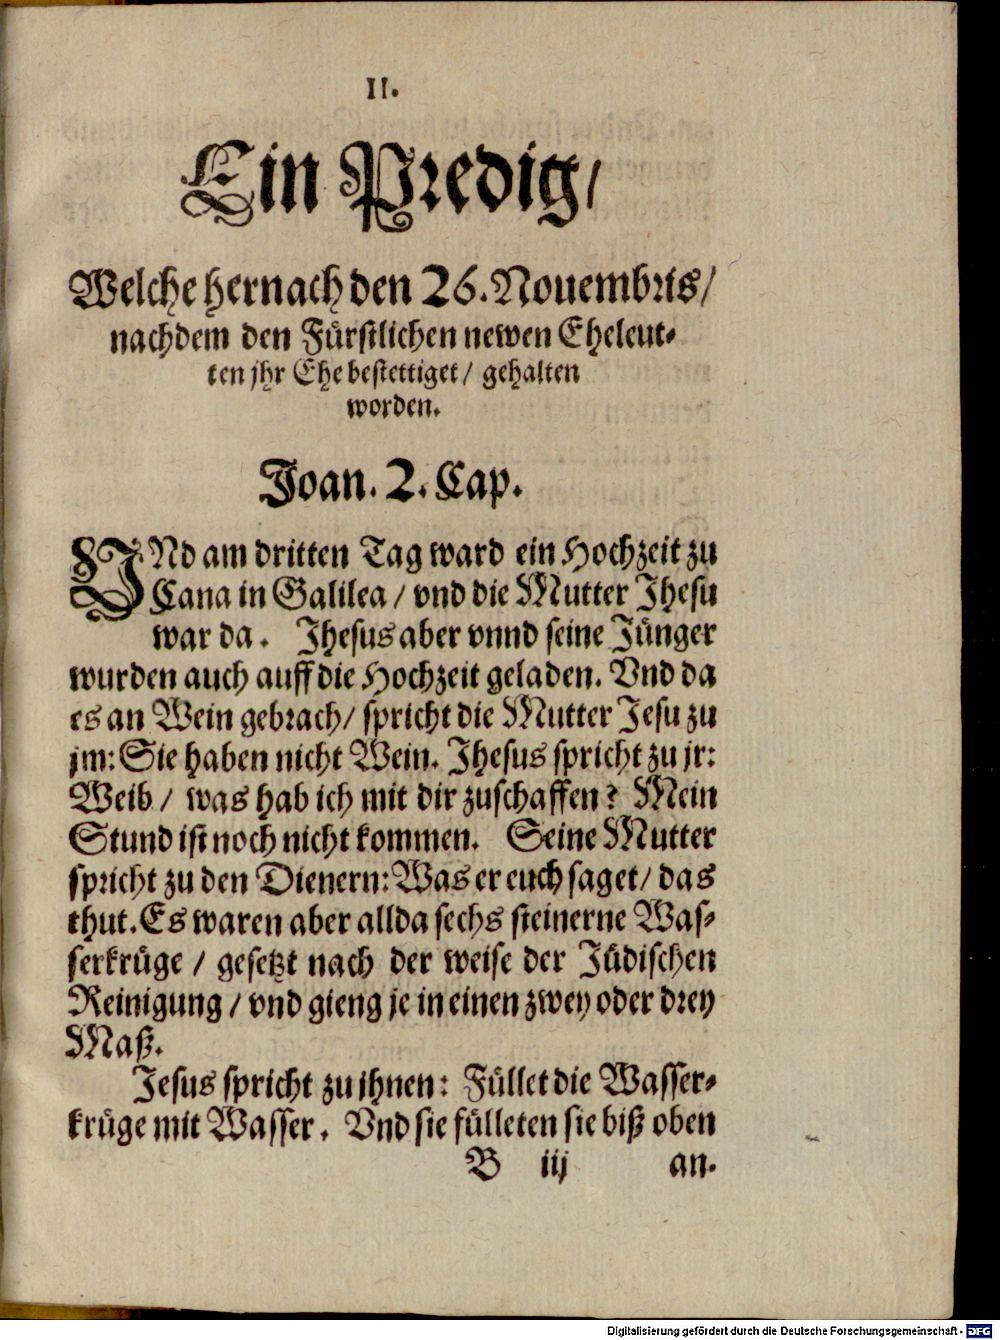 II.
Ein Predig/
Welche hernach den 26. Nouembris/
nachdem den Fürstlichen newen Eheleut-
ten jhr Ehe bestettiget/ gehalten
worden.
Joan. 2. Cap.
VNd am dritten Tag ward ein Hochzeit zu
Cana in Galilea / vnd die Mutter Jhesu
war da. Jhesus aber vnnd seine Jünger
wurden auch auff die Hochzeit geladen. Vnd da
es an Wein gebrach/ spricht die Mutter Jesu zu
jm: Sie haben nicht Wein. Jhesus spricht zu jr:
Weib / was hab ich mit dir zuschaffen? Mein
Stund ist noch nicht kommen. Seine Mutter
spricht zu den Dienern: Was er euch saget/ das
thut. Es waren aber allda sechs steinerne Was-
serkrüge / gesetzt nach der weise der Jüdischen
Reinigung / vnd gieng je in einen zwey oder drey
Maß.
Jesus spricht zu jhnen: Füllet die Wasser-
krüge mit Wasser. Vnd sie fülleten sie biß oben
B iij an.
Digitalisierung gefördert durch die Deutsche Forschungsgemeinschaft - DFG